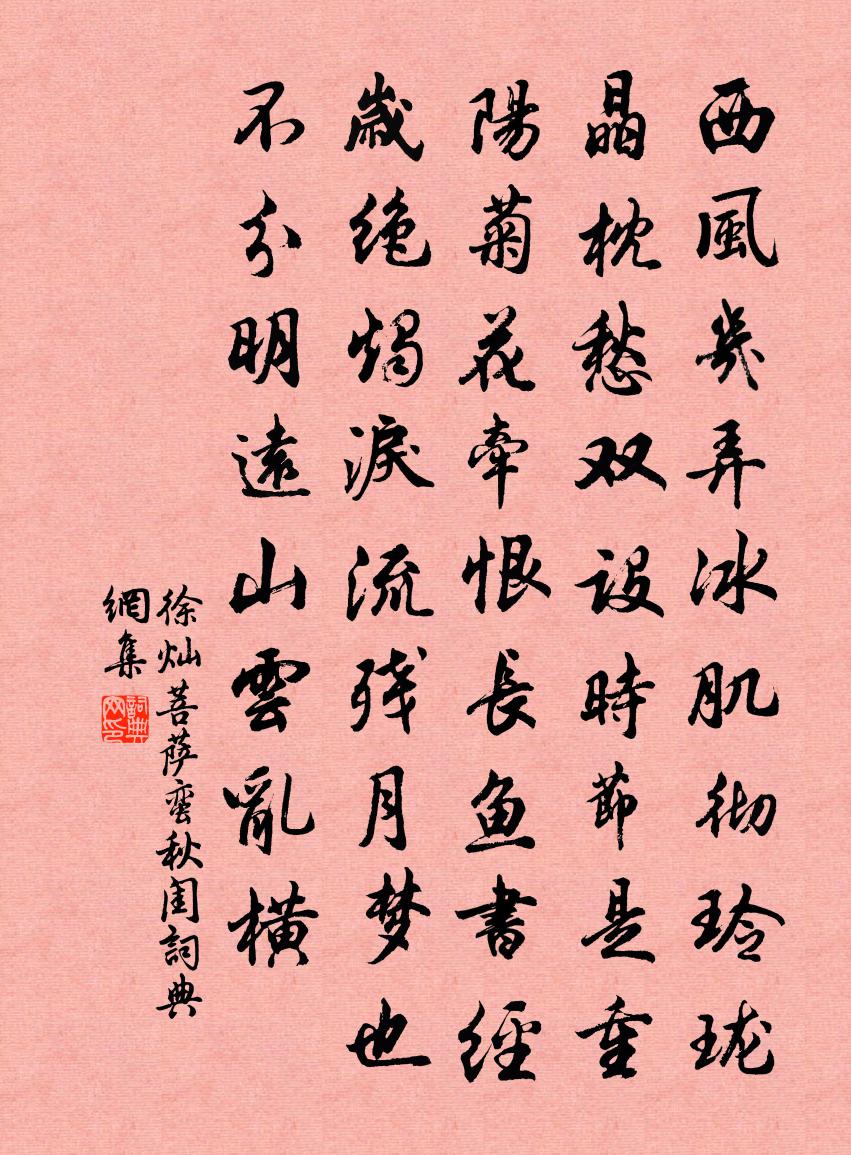 西風幾弄冰肌彻玲珑
晶枕愁双設時節是重
陽菊花牽恨長鱼書經
歲绝燭淚流残月梦也
不分明遠山雲亂横
徐灿菩萨蛮秋闺詞典
網集
詞典
网印